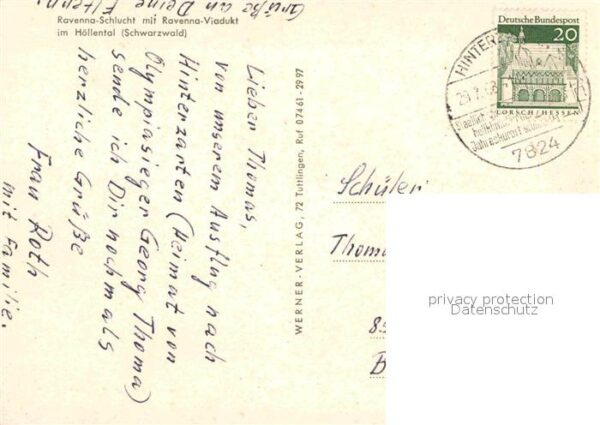 Ravenna-Schlucht mit Ravenna-Viadukt
im Höllental (Schwarzwald)
Lieber Thomas,
von unserem Ausflug nach
Hinterzarten (Heimat von
Olympiasieger Georg Thoma)
sende ich Dir nochmals
herzliche Grüße
Frau Roth
mit Familie.
Grüße an Deine Eltern!
WERNER-VERLAG, 72 Tuttlingen, Ruf 07461-2997
Deutsche Bundespost
20
LORSCH/HESSEN
HINTERZ
7824
Schüler
Thoma
85
B
privacy protection
Datenschutz